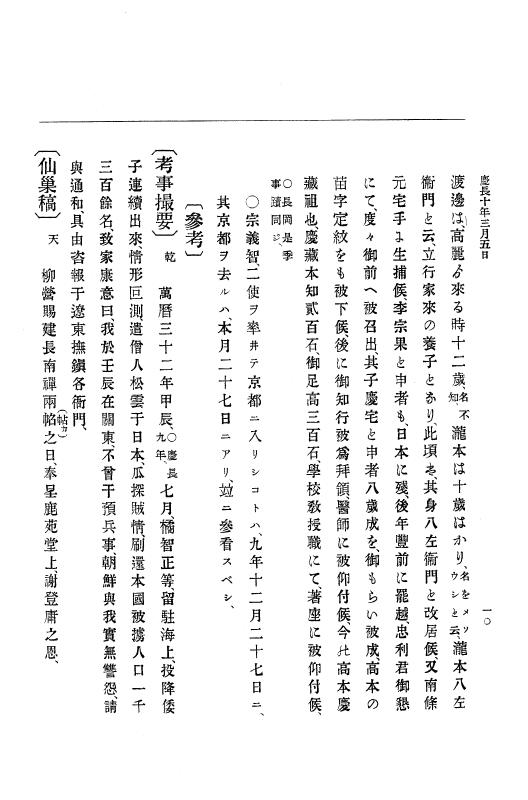 慶長十年三月五日
一〇
渡邊は、高麗ゟ來る時十二歳、名不知、瀧本は十歳はかり、名をメソウシと云、瀧本八左
衞門と云、立行家來の養子となり、此頃は、其身八左衞門と改居候、又南條
元宅手に生捕候李宗果と申者も、日本に殘、後年豐前に罷越、忠利君御懇
にて、度々御前へ被召出、其子慶宅と申者八歳成を、御もらい被成、高本の
苗字定紋をも被下候、後に御知行被爲拜領、醫師に被仰付候、今の高本慶
藏祖也、慶藏本知貳百石、御足高三百石、學校敎授職にて、著座に被仰付候、
○長岡是季事蹟同ジ、
○宗義智、二使ヲ率ヰテ京都ニ入リシコトハ、九年十二月二十七日ニ、
其京都ヲ去ルハ、本月二十七日ニアリ、竝ニ參看スベシ、
〔參考〕
〔考事撮要〕乾 萬曆三十二年甲辰、○慶長九年、七月、橘智正等、留駐海上、投降倭
子連續出來、情形叵測、遣僧人松雲于日本、瓜探賊情、刷還本國被擄人口一千
三百餘名、致家康意曰、我於壬辰在關東、不曾干預兵事、朝鮮與我實無讐怨、請
與通和、具由咨報于遼東撫鎭各衙門、
〔仙巢稿〕天 柳營賜建長南禪兩帖(帖カ)之日、奉呈鹿苑堂上、謝登庸之恩、